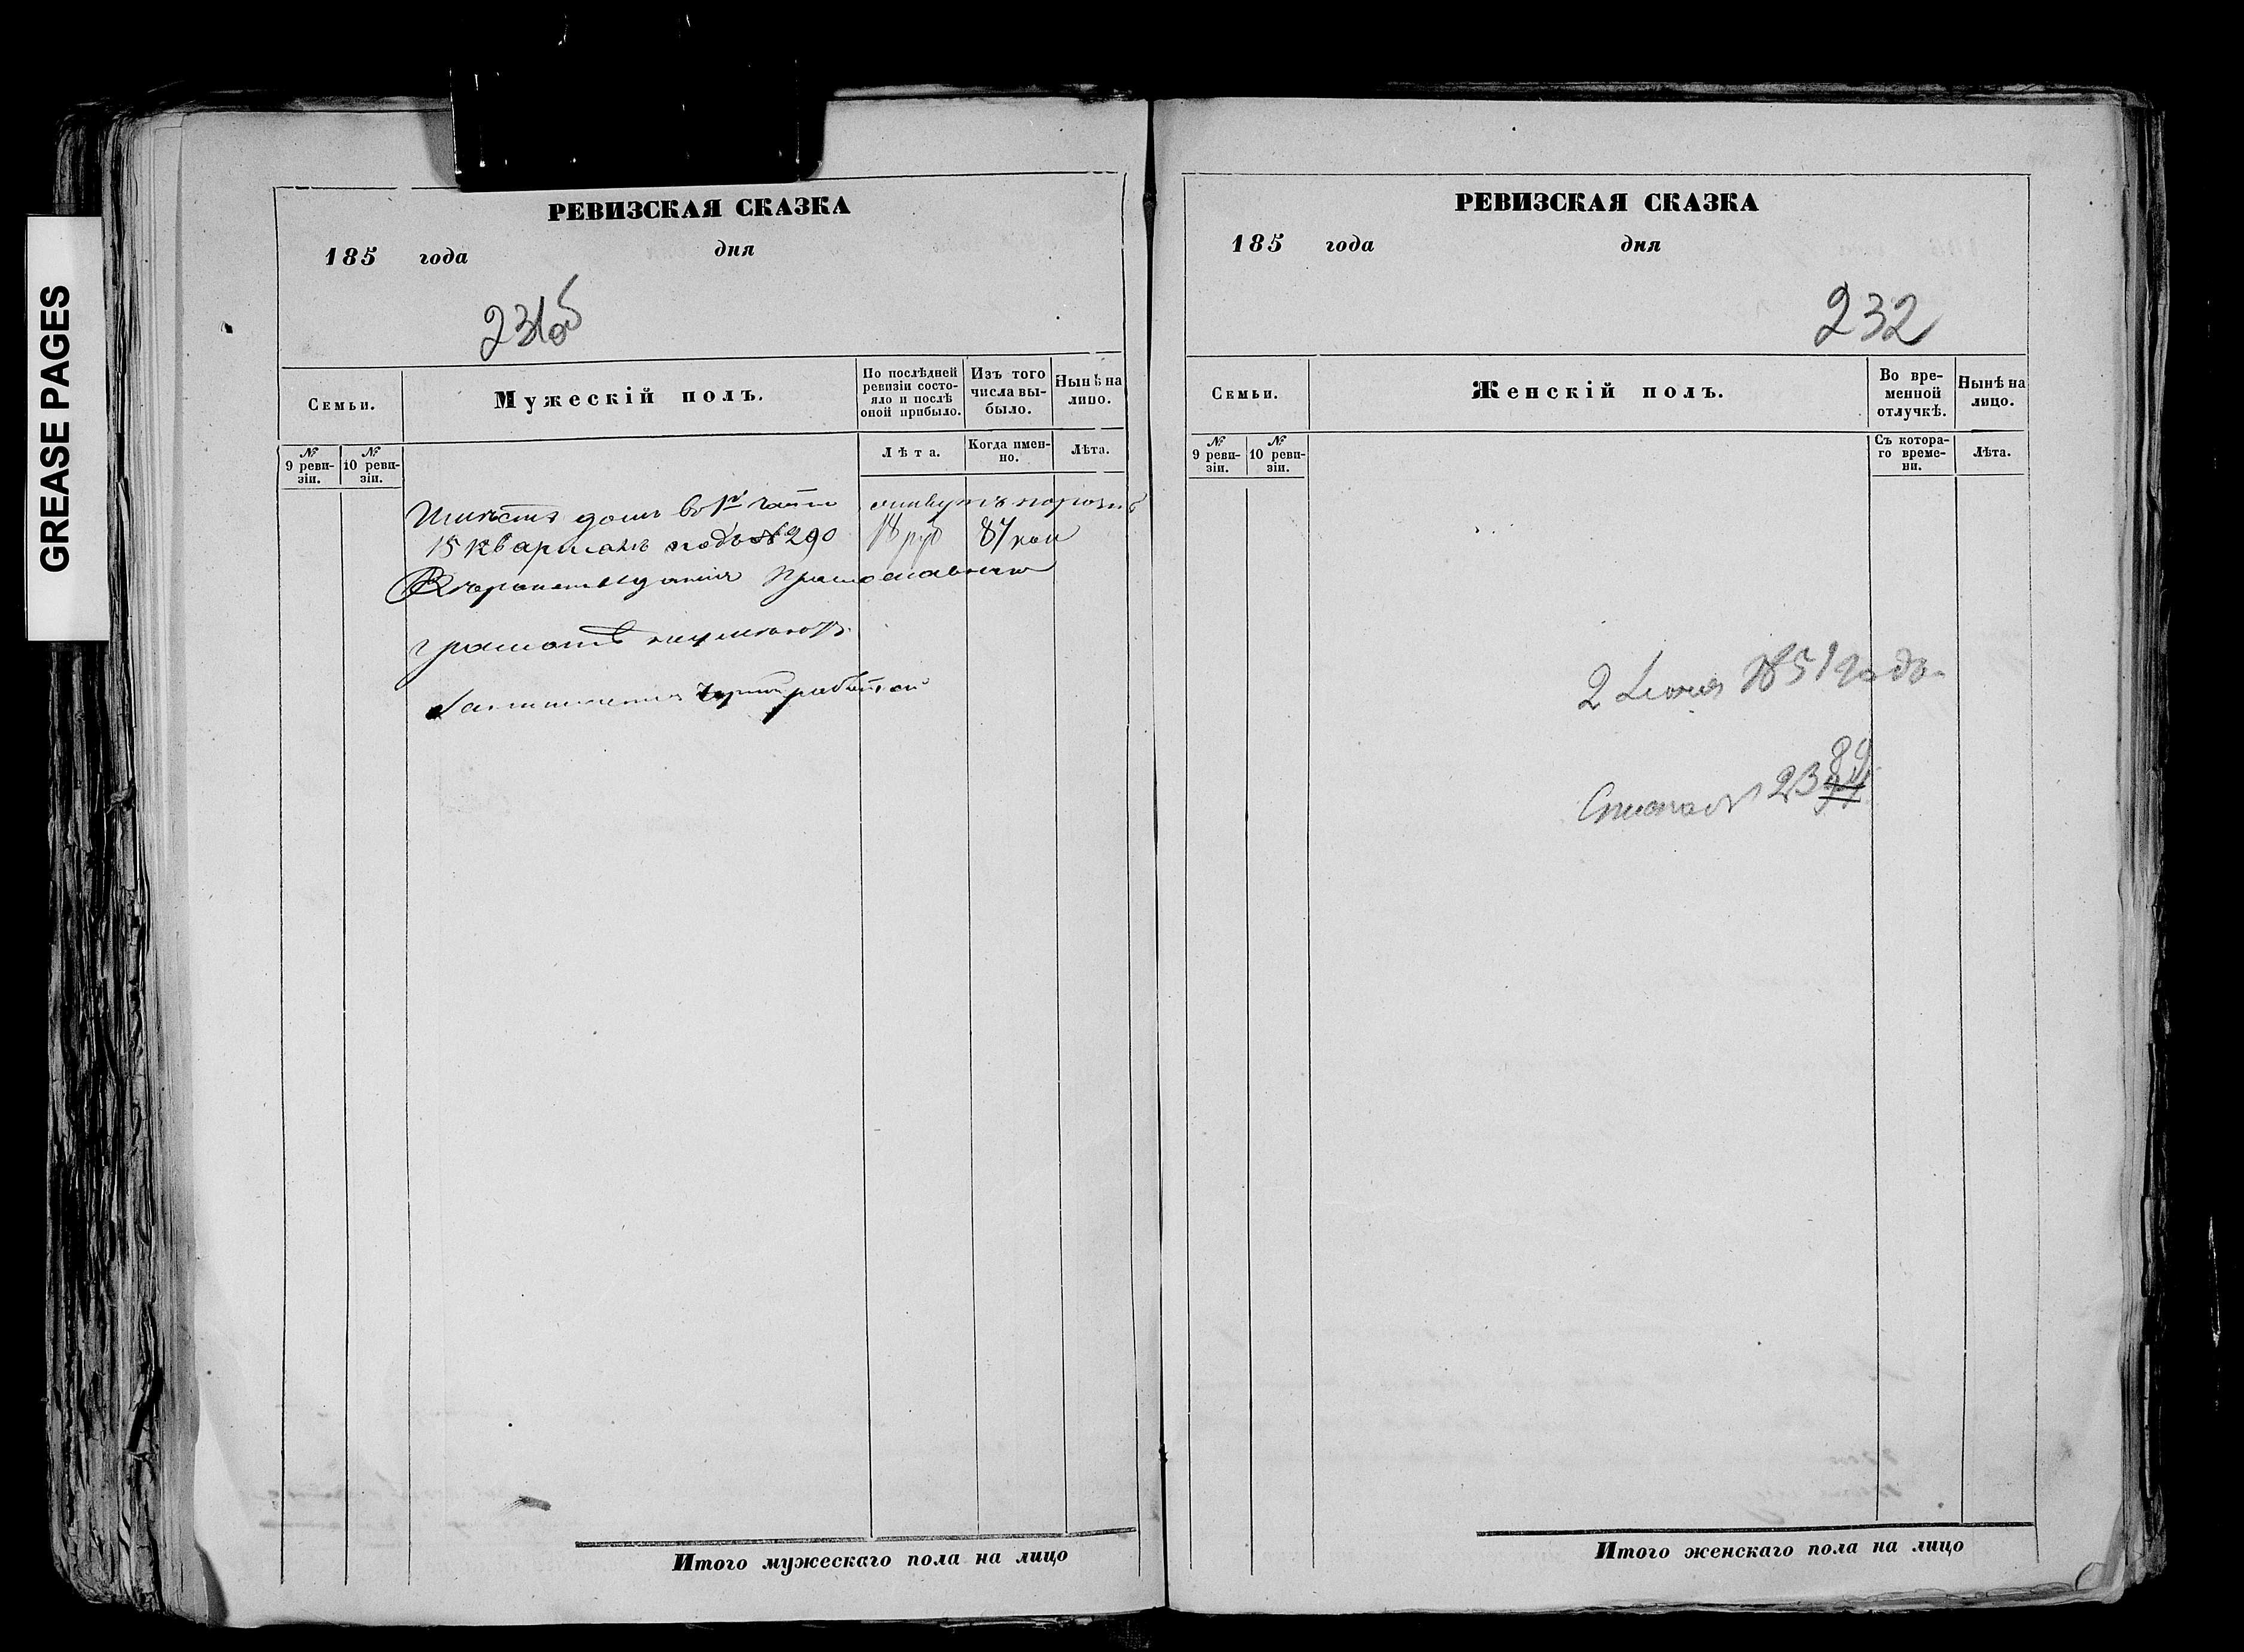 GREASE PAGES
РЕВИЗСКАЯ СКАЗКА
185 года дня
231об
Семьи.
Мужескій полъ.
По послѣдней ревизіи состо-
яло и послѣ оной прибыло.
Изъ того числа вы-
было.
Нынѣ на лицо.
№ 9 реви-
зіи.
№ 10 реви-
зіи.
Лѣта.
Когда имен-
но.
Лѣта.
домъ во 1й части
15 кварталѣ подъ № 290 18 руб 87 коп
Вѣроисповѣданія Православнаго
грамотѣ
Занимается работой
Итого мужескаго пола на лицо
РЕВИЗСКАЯ СКАЗКА
185 года дня
232
Семьи.
Женскій полъ.
Во вре-
менной отлучкѣ.
Нынѣ на лицо.
№ 9 реви-
зіи.
№ 10 реви-
зіи.
Съ котора-
го време-
ни.
Лѣта.
2 1851 года
89
23
Итого женскаго пола на лицо